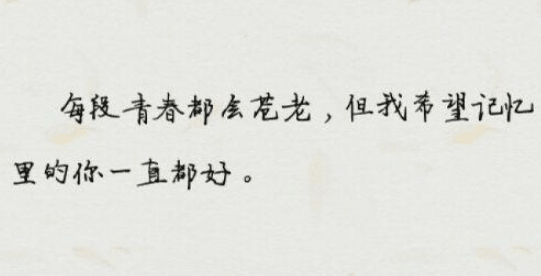 每段青春都会苍老，但我希望记忆
里的你一直都好。